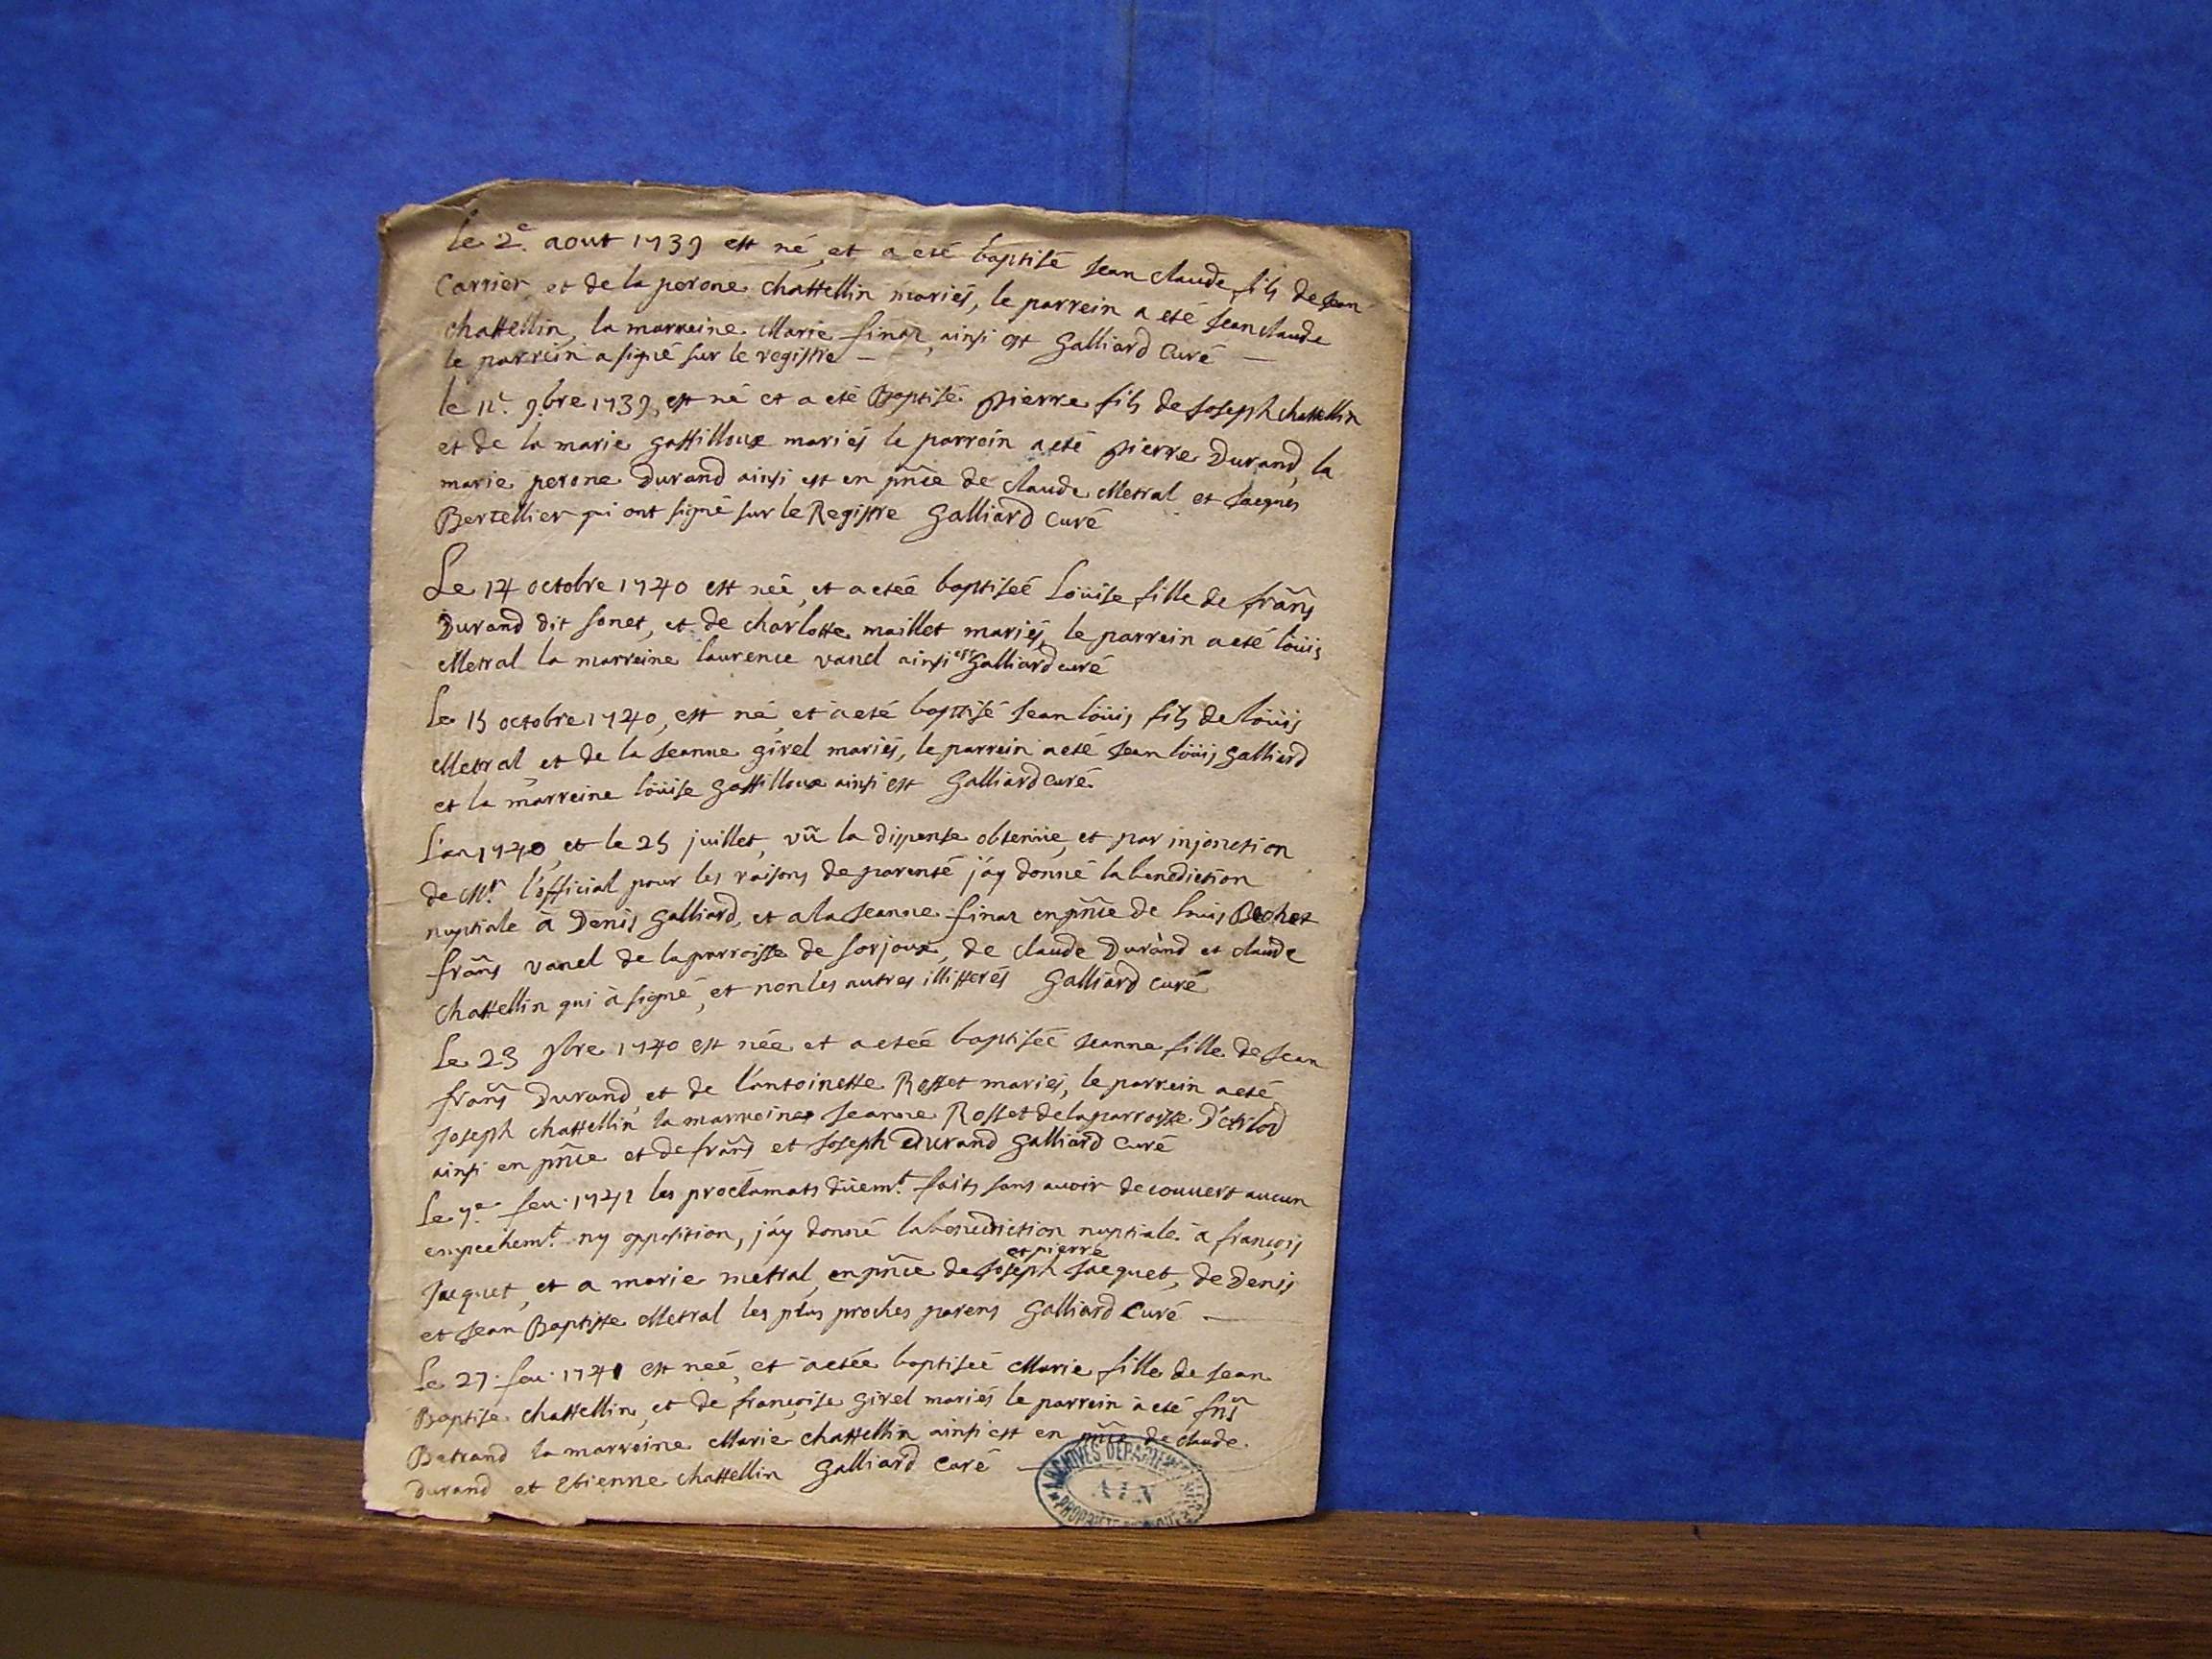 Le 2e. aout 1739 est né, et a eté baptisé Jean claude fils de Jean
Carrier et de la perone chattellin mariés, le parrein a eté Jean claude
chattellin, la marreine Marie finaz, ainsi est Galliard Curé
le parrein a signé sur le registre
le 11e. 9.bre 1739, est né et a eté Baptisé pierre fils de Joseph chattellin
et de la marie gattilloux mariés le parrein a eté pierre Durand, la
marie perone Durand ainsi est en pñce de claude Metral et Jacques
Bertellier qui ont signé sur le Registre Galliard curé
Le 14 octobre 1740 est née, et a eteé baptiseé Loüise fille de frañs
Durand dit sonet, et de charlotte maillet mariés, le parrein a eté loüis
Metral la marreine laurence vanel ainsi est Galliard curé
Le 15 octobre 1740, est né, et a eté baptisé Jean loüis fils de loüis
Metral et de la Jeanne girel mariés, le parrein a eté Jean loüis galliard
et la marreine loüise gattilloux ainsi est Galliard curé
L'an 1740, et le 25 juillet, vû la dispense obtenüe, et par injonction
de Mr. l'official pour les raisons de parenté j'ay donné la benediction
nuptiale à Denis galliard, et a la Jeanne finaz en pñce de louis Bechet
frañs vanel de la parroisse de sorjoux, de claude Durand et claude
chattellin qui à signé, et non les autres illitterés Galliard curé
Le 23 9bre 1740 est née et a eteé baptiseé Jeanne fille de Jean
frañs Durand, et de l'antoinette Rosset mariés, le parrein a eté
Joseph chattellin la marreine Jeanne Rosset de la parroisse
ainsi en pñce et de frañs et Joseph Durand Galliard Curé
Le 7e. feu. 1741 les proclamats düemt. faits sans avoir decouvert aucun
empechemt. ny opposition, j'ay donné la benediction nuptiale à françois
et pierre
Jacquet, et a marie metral, en pñce de Joseph Jacquet, de Denis
et Jean Baptiste Metral les plus proches parens Galliard Curé
Le 27. feu. 1741 est neé, et a etée baptiseé Marie fille de Jean
Baptise chattellin, et de françoise girel mariés le parrein à eté
Betrand la marreine Marie chattellin ainsi est en pñce de claude
durand et Etienne chattellin Galliard Curé
ARCHIVES
AIN